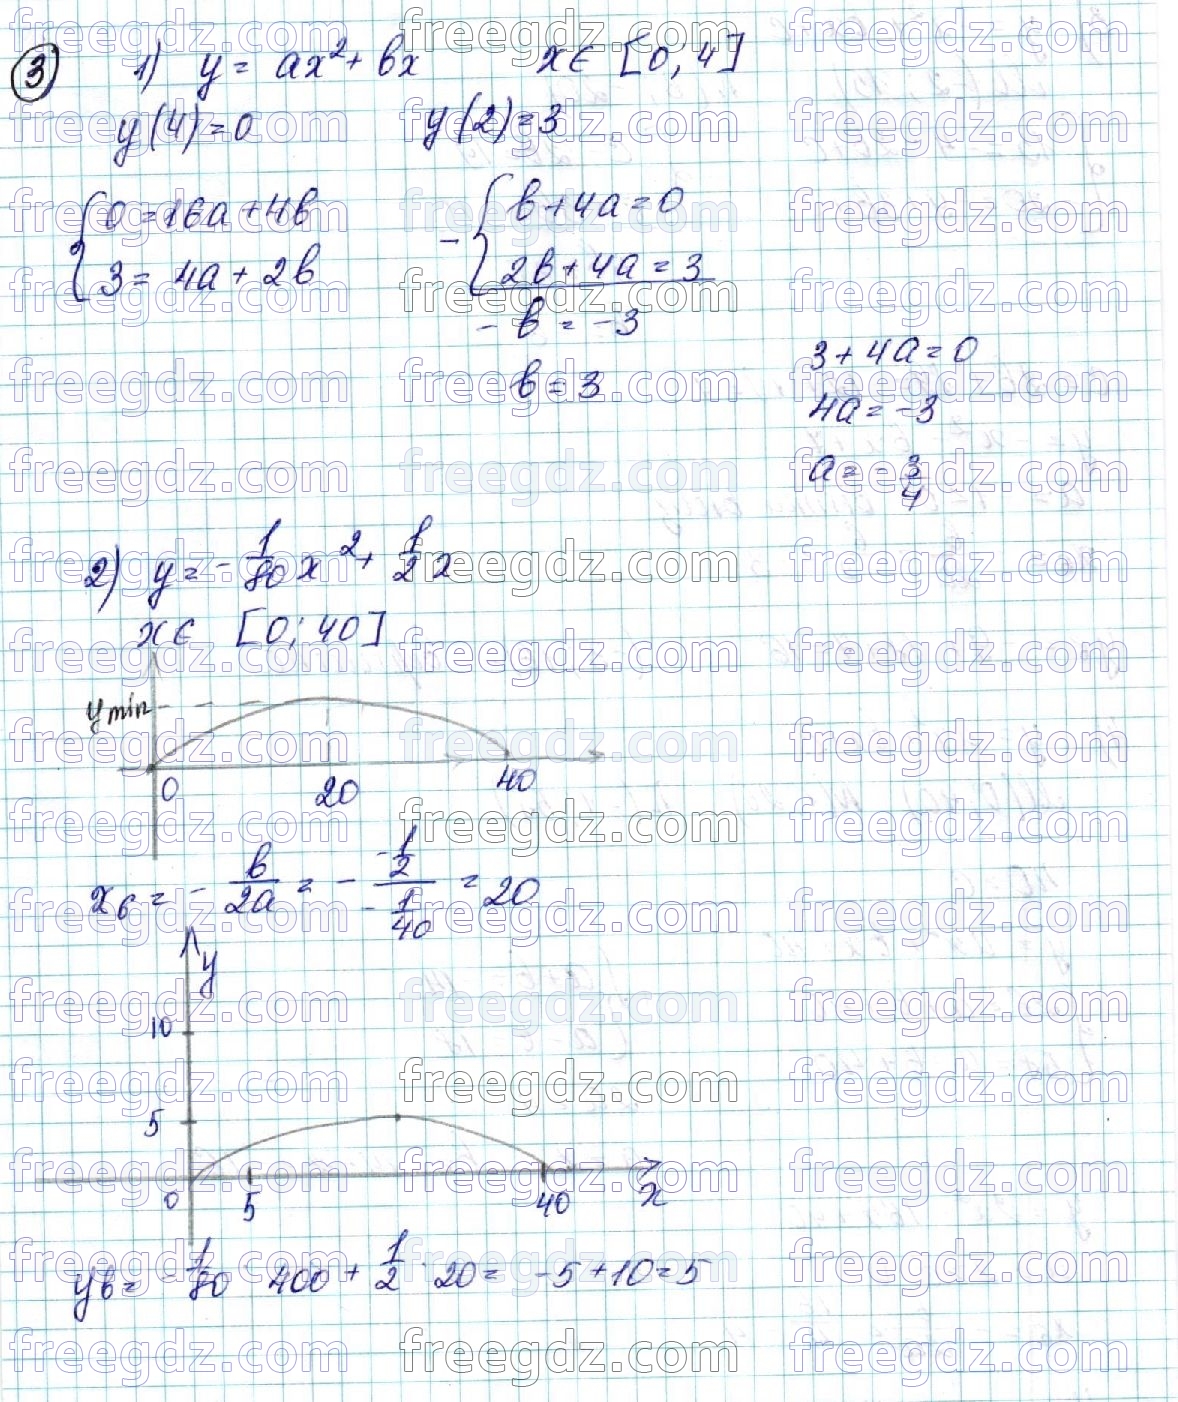 ③ 1) y = ax² + bx   x ∈ [0; 4]
y(4) = 0   y(2) = 3
{ 0 = 16a + 4b   - { b + 4a = 0
3 = 4a + 2b   2b + 4a = 3
- b = -3
3 + 4a = 0
b = 3
4a = -3
a = - 3/4
2) y = - 1/80 x² + 1/2 x
x ∈ [0; 40]
y min
0 20 40
xв = - b/2a = - (-1/2)/(-1/40) = 20
y
10
5
0 5 40 x
yв = - 1/80 · 400 + 1/2 · 20 = -5 + 10 = 5
freegdz.com